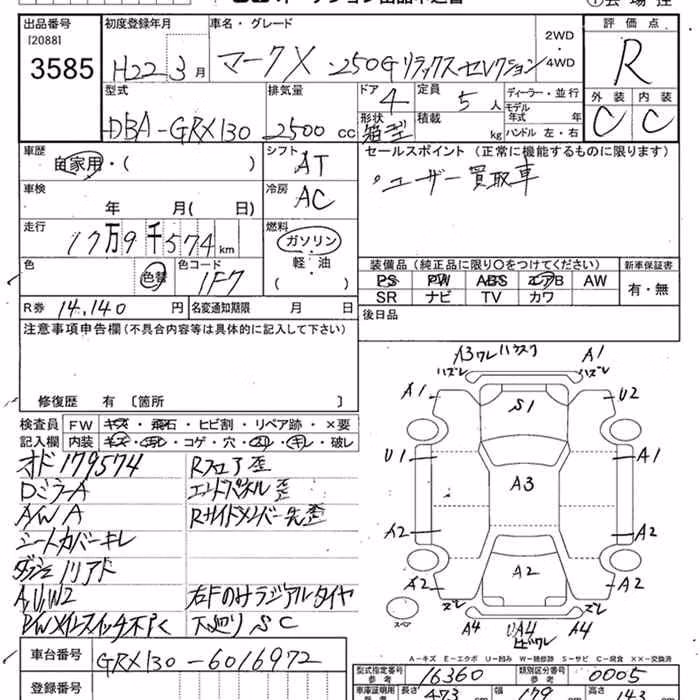 出品番号
[2088]
3585
初度登録年月
H22 3月
車名・グレード
マークX 250G リラックスセレクション
2WD
・
4WD
評価点
R
外装 内装
C C
型式
DBA-GRX130
排気量
2500 cc
ドア
4
形状
箱型
定員
5 人
積載
kg
ディーラー・並行
モデル
年式 年
ハンドル 左・右
車歴
自家用・( )
シフト
AT
セールスポイント (正常に機能するものに限ります)
・ユーザー買取車
車検
年 月( 日)
冷房
AC
走行
17万9千574km
燃料
ガソリン
軽・油
( )
色
色替
色コード
1F7
装備品(純正品に限り○をつけてください)
新車保証書
PS PW ABS エアB AW
SR ナビ TV カワ
有・無
R券 14,140 円
名変通知期限 月 日
後日品
注意事項申告欄(不具合内容等は具体的に記入して下さい)
修復歴 有〔箇所 〕
検査員
記入欄
FW キズ・飛石・ヒビ割・リペア跡・×要
内装 キズ・汚れ・コゲ・穴・スレ・キレ・破レ
オド179574
DミラーA
A/W A
シートカバーキレ
ダッシュノリアド
A,U,W2
PWメインスイッチ不良
Rフロア歪
エンドパネル歪
Rサイドメンバー先歪
左Fのみラジアルタイヤ
下廻りSC
A3ワレ
ハズレ
A1
ハズレ
A1
S1
U2
U1
A3
A1
A2
A2
A2
A2
A2
ズレ
ズレ
スペア
A4
UA4
A4
A-キズ E-エクボ U-凹み W-補修跡 S-サビ C-腐食 ××-交換済
車台番号
GRX130-6016972
登録番号
型式指定番号
参考
16360
類別区分番号
参考
0005
車庫証明用
長さ 473 cm
幅 179 cm
高さ 143 cm